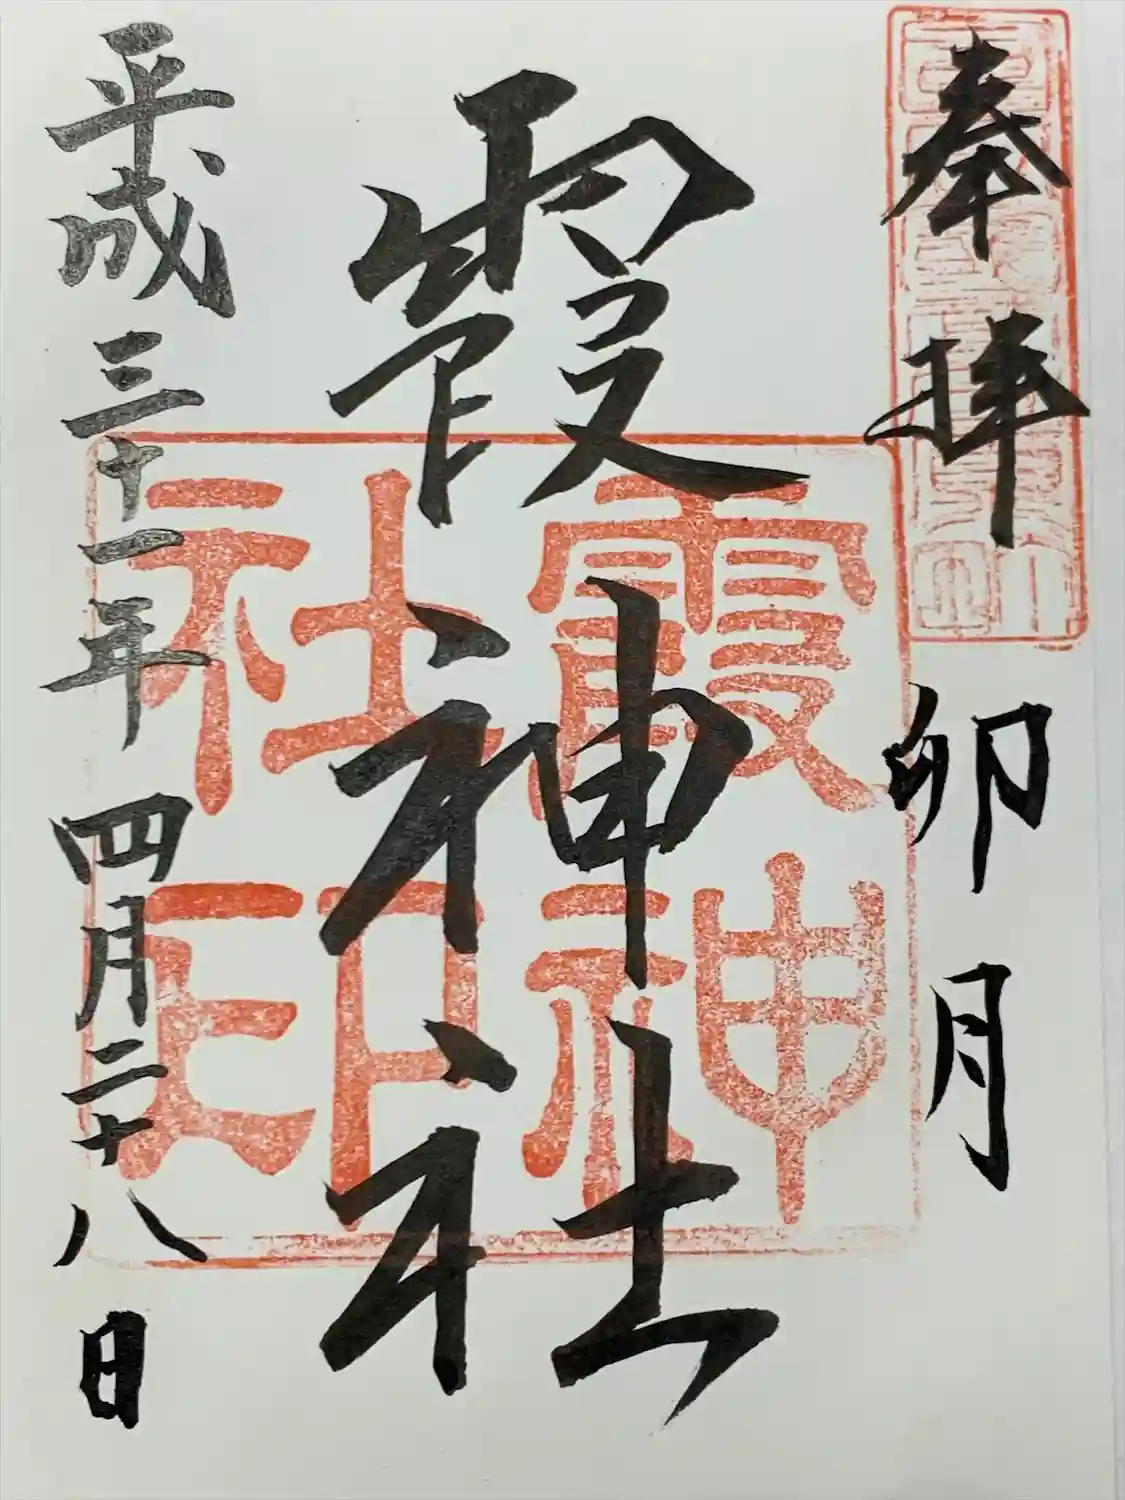 奉拝
卯月
霞神社
霞神社印
平成三十一年
四月二十八日